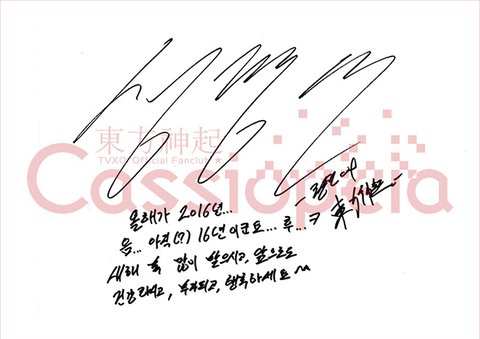 東方神起
TVXQ! Official Fanclub ★
Cassiopeia
올해가 2016년...
음... 아직(?) 16년이군요... 후...ㅋ
새해 복 많이 받으시고, 앞으로도
건강하시고, 부자되고, 행복하세요 ^^